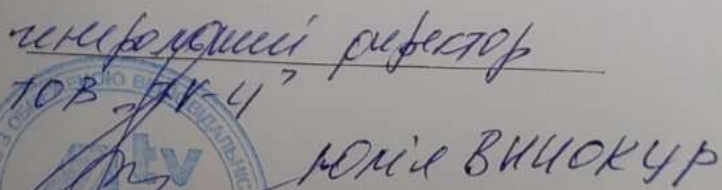 генеральний директор
ТОВ „TV-4”
Юлія ВИНОКУР
tv